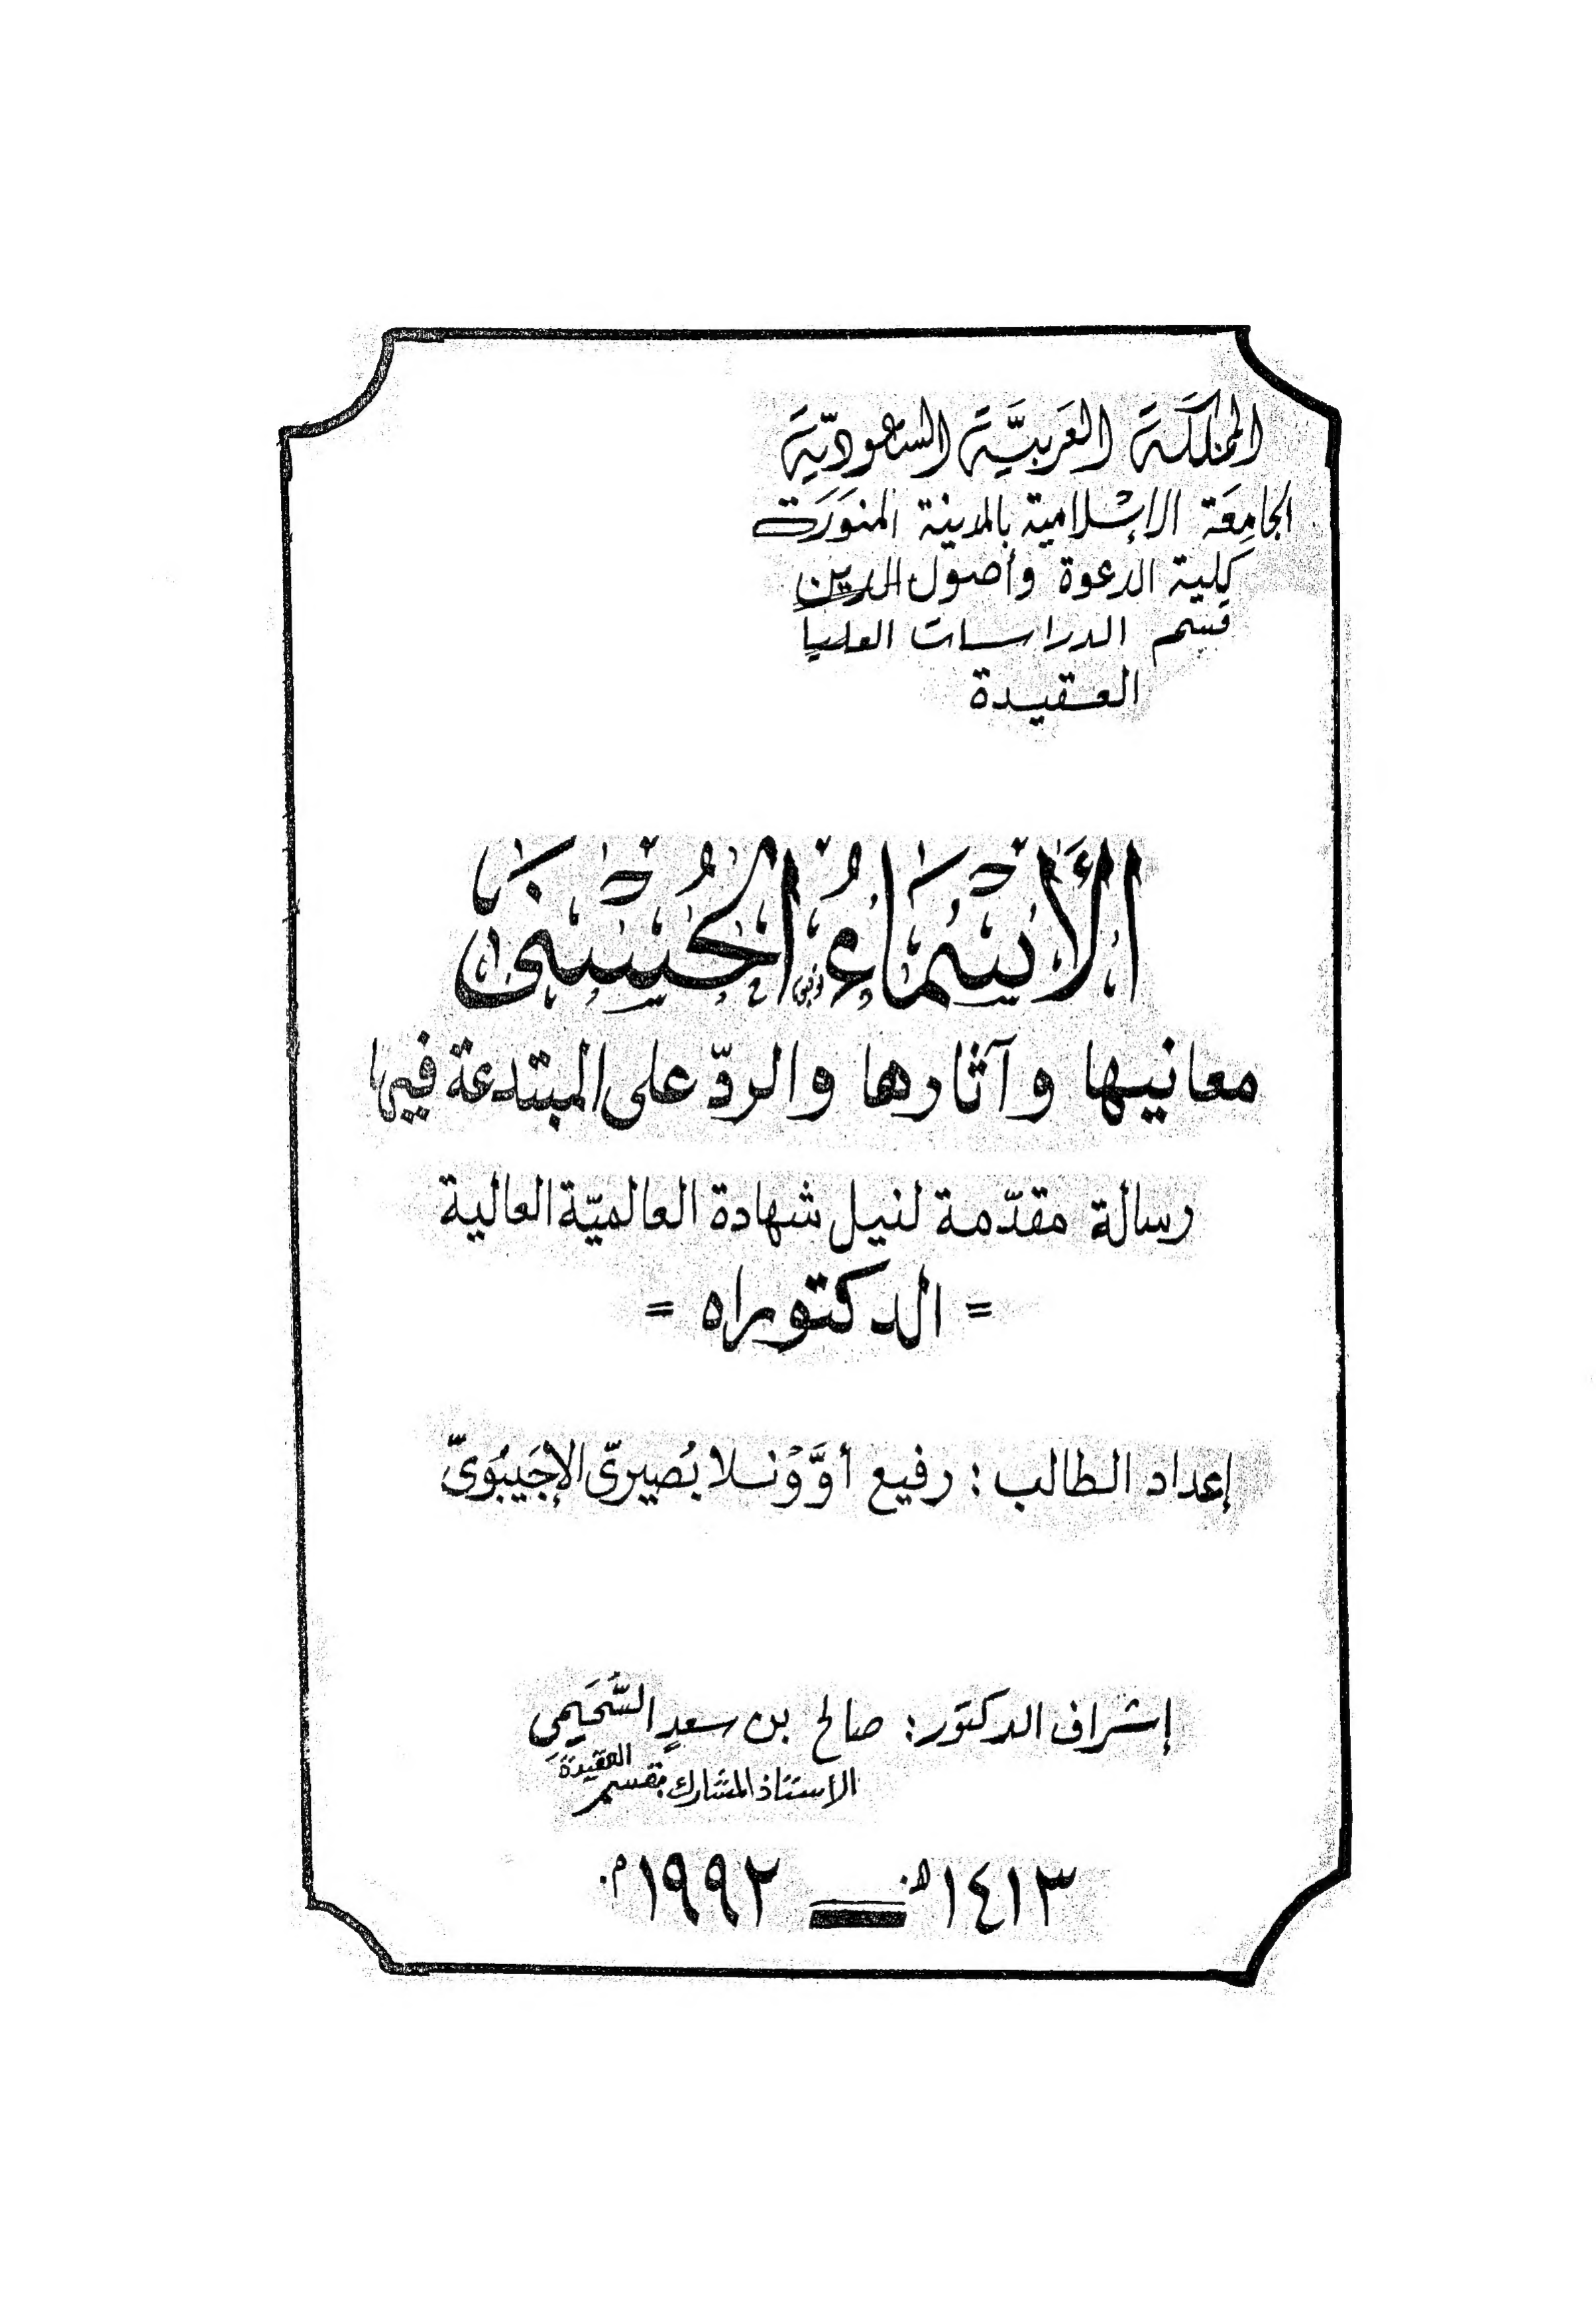 المملكَة العَربيَّة السعوديّة
الجامِعَة الإسْلامية بالمدينة المنوَرَة
كلية الدعوة وأصول الدين
قسم الدراسات العليا
العقيدة
الأَسْمَاءُ الحُسْنَى
معانيها وآثارها والردّ على المبتدعة فيها
رسالة مقدّمة لنيل شهادة العالميّة العالية
= الدكتوراه =
إعداد الطالب : رفيع أوَّوْنلا بُصيريّ الإجَيبُويّ
إشراف الدكتور: صالح بن سعدٍ السَّحَيمي
الأستاذ المشارك بقسم العقيدة
١٤١٣هـ ــ ١٩٩٢م.